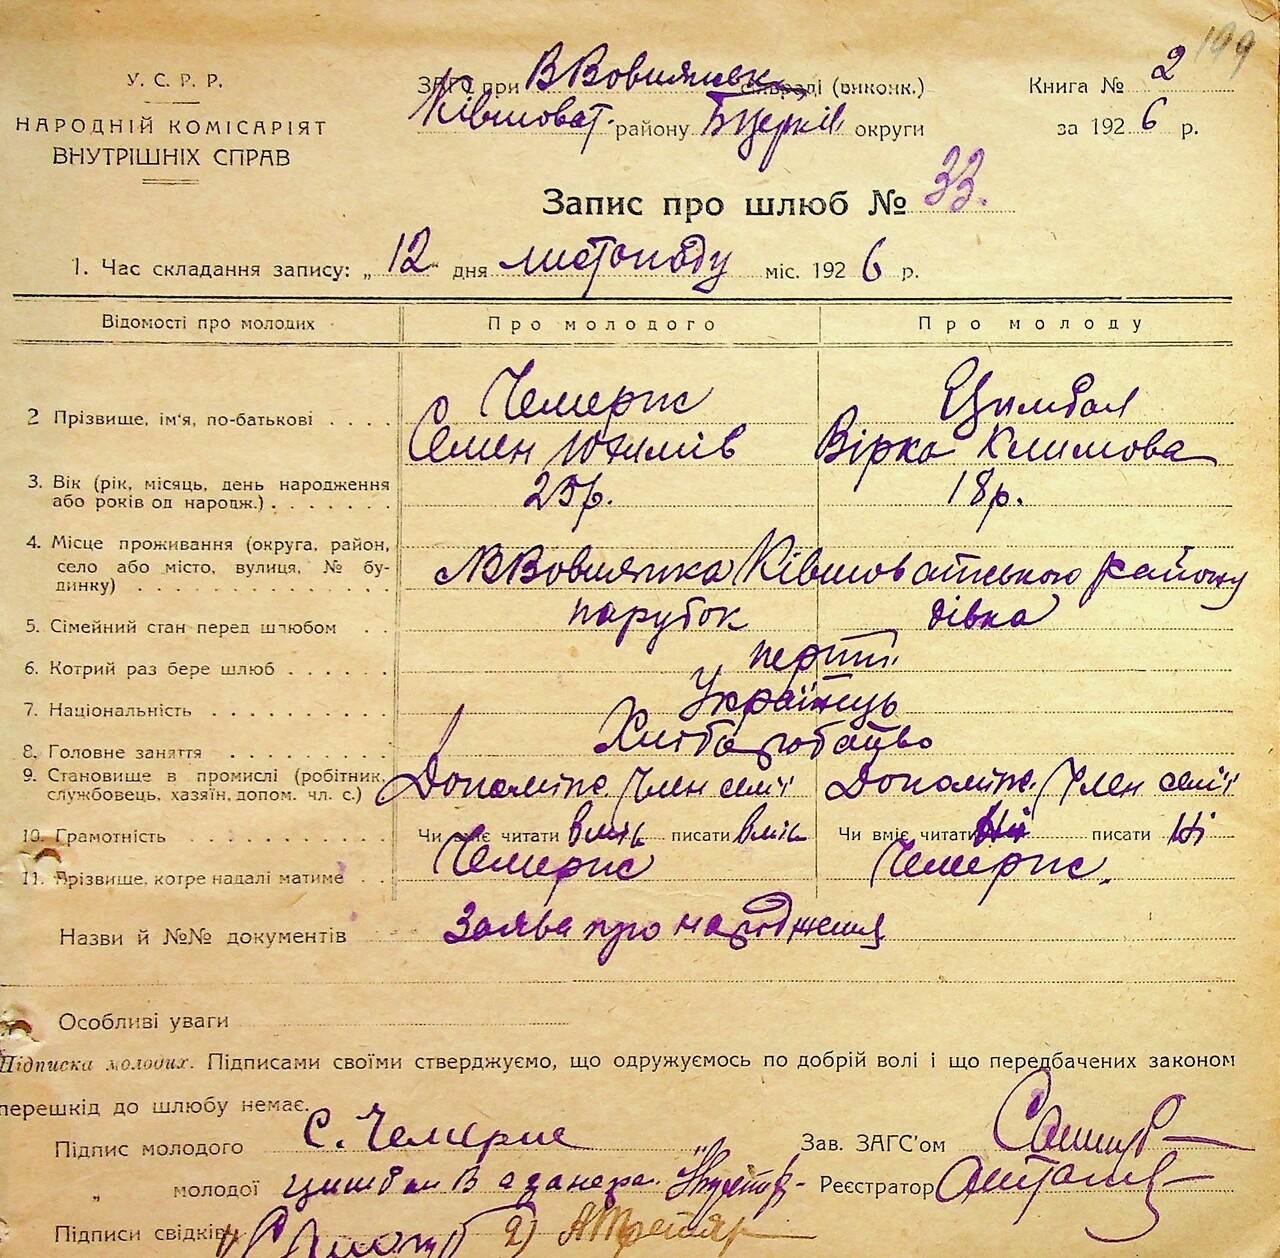 199
У. С. Р. Р.
НАРОДНІЙ КОМІСАРІЯТ
ВНУТРІШНІХ СПРАВ
ЗАГС при ВВовнянськ сільраді (виконк.)
Ківшоват. району Бцерків округи
Книга № 2
за 1926 р.
Запис про шлюб № 33.
1. Час складання запису: „ 12 дня листопаду міс. 1926 р.
Відомості про молодих Про молодого Про молоду
Чемерис Цимбал
2 Прізвище, ім'я, по-батькові . . . . Семен Юхимів Вірка Климова
3. Вік (рік, місяць, день народження
або років од народж.) . . . . . . . 25р. 18р.
4. Місце проживання (округа, район,
село або місто, вулиця, № бу-
динку) . . . . . . . . . . . . . ВВовнянка Ківшоватського району
5. Сімейний стан перед шлюбом . . парубок дівка
6. Котрий раз бере шлюб . . . . . . перший
7. Національність . . . . . . . . . . Українець
8. Головне заняття . . . . . . . Хлібаробство
9. Становище в промислі (робітник,
службовець, хазяїн, допом. чл. с.) Допоміж. Член семії Допоміж. Член семії
10. Грамотність . . . . . . . Чи вміє читати вміє писати вміє Чи вміє читати Ні писати Ні
11. Прізвище, котре надалі матиме . Чемерис Чемерис.
Назви й №№ документів Заява про народження
Особливі уваги
Підписка молодих. Підписами своїми стверджуємо, що одружуємось по добрій волі і що передбачених законом
перешкід до шлюбу немає.
Підпис молодого С. Чемерис Зав. ЗАГС'ом
„ молодої Цимбал В Реєстратор
Підписи свідків 2)